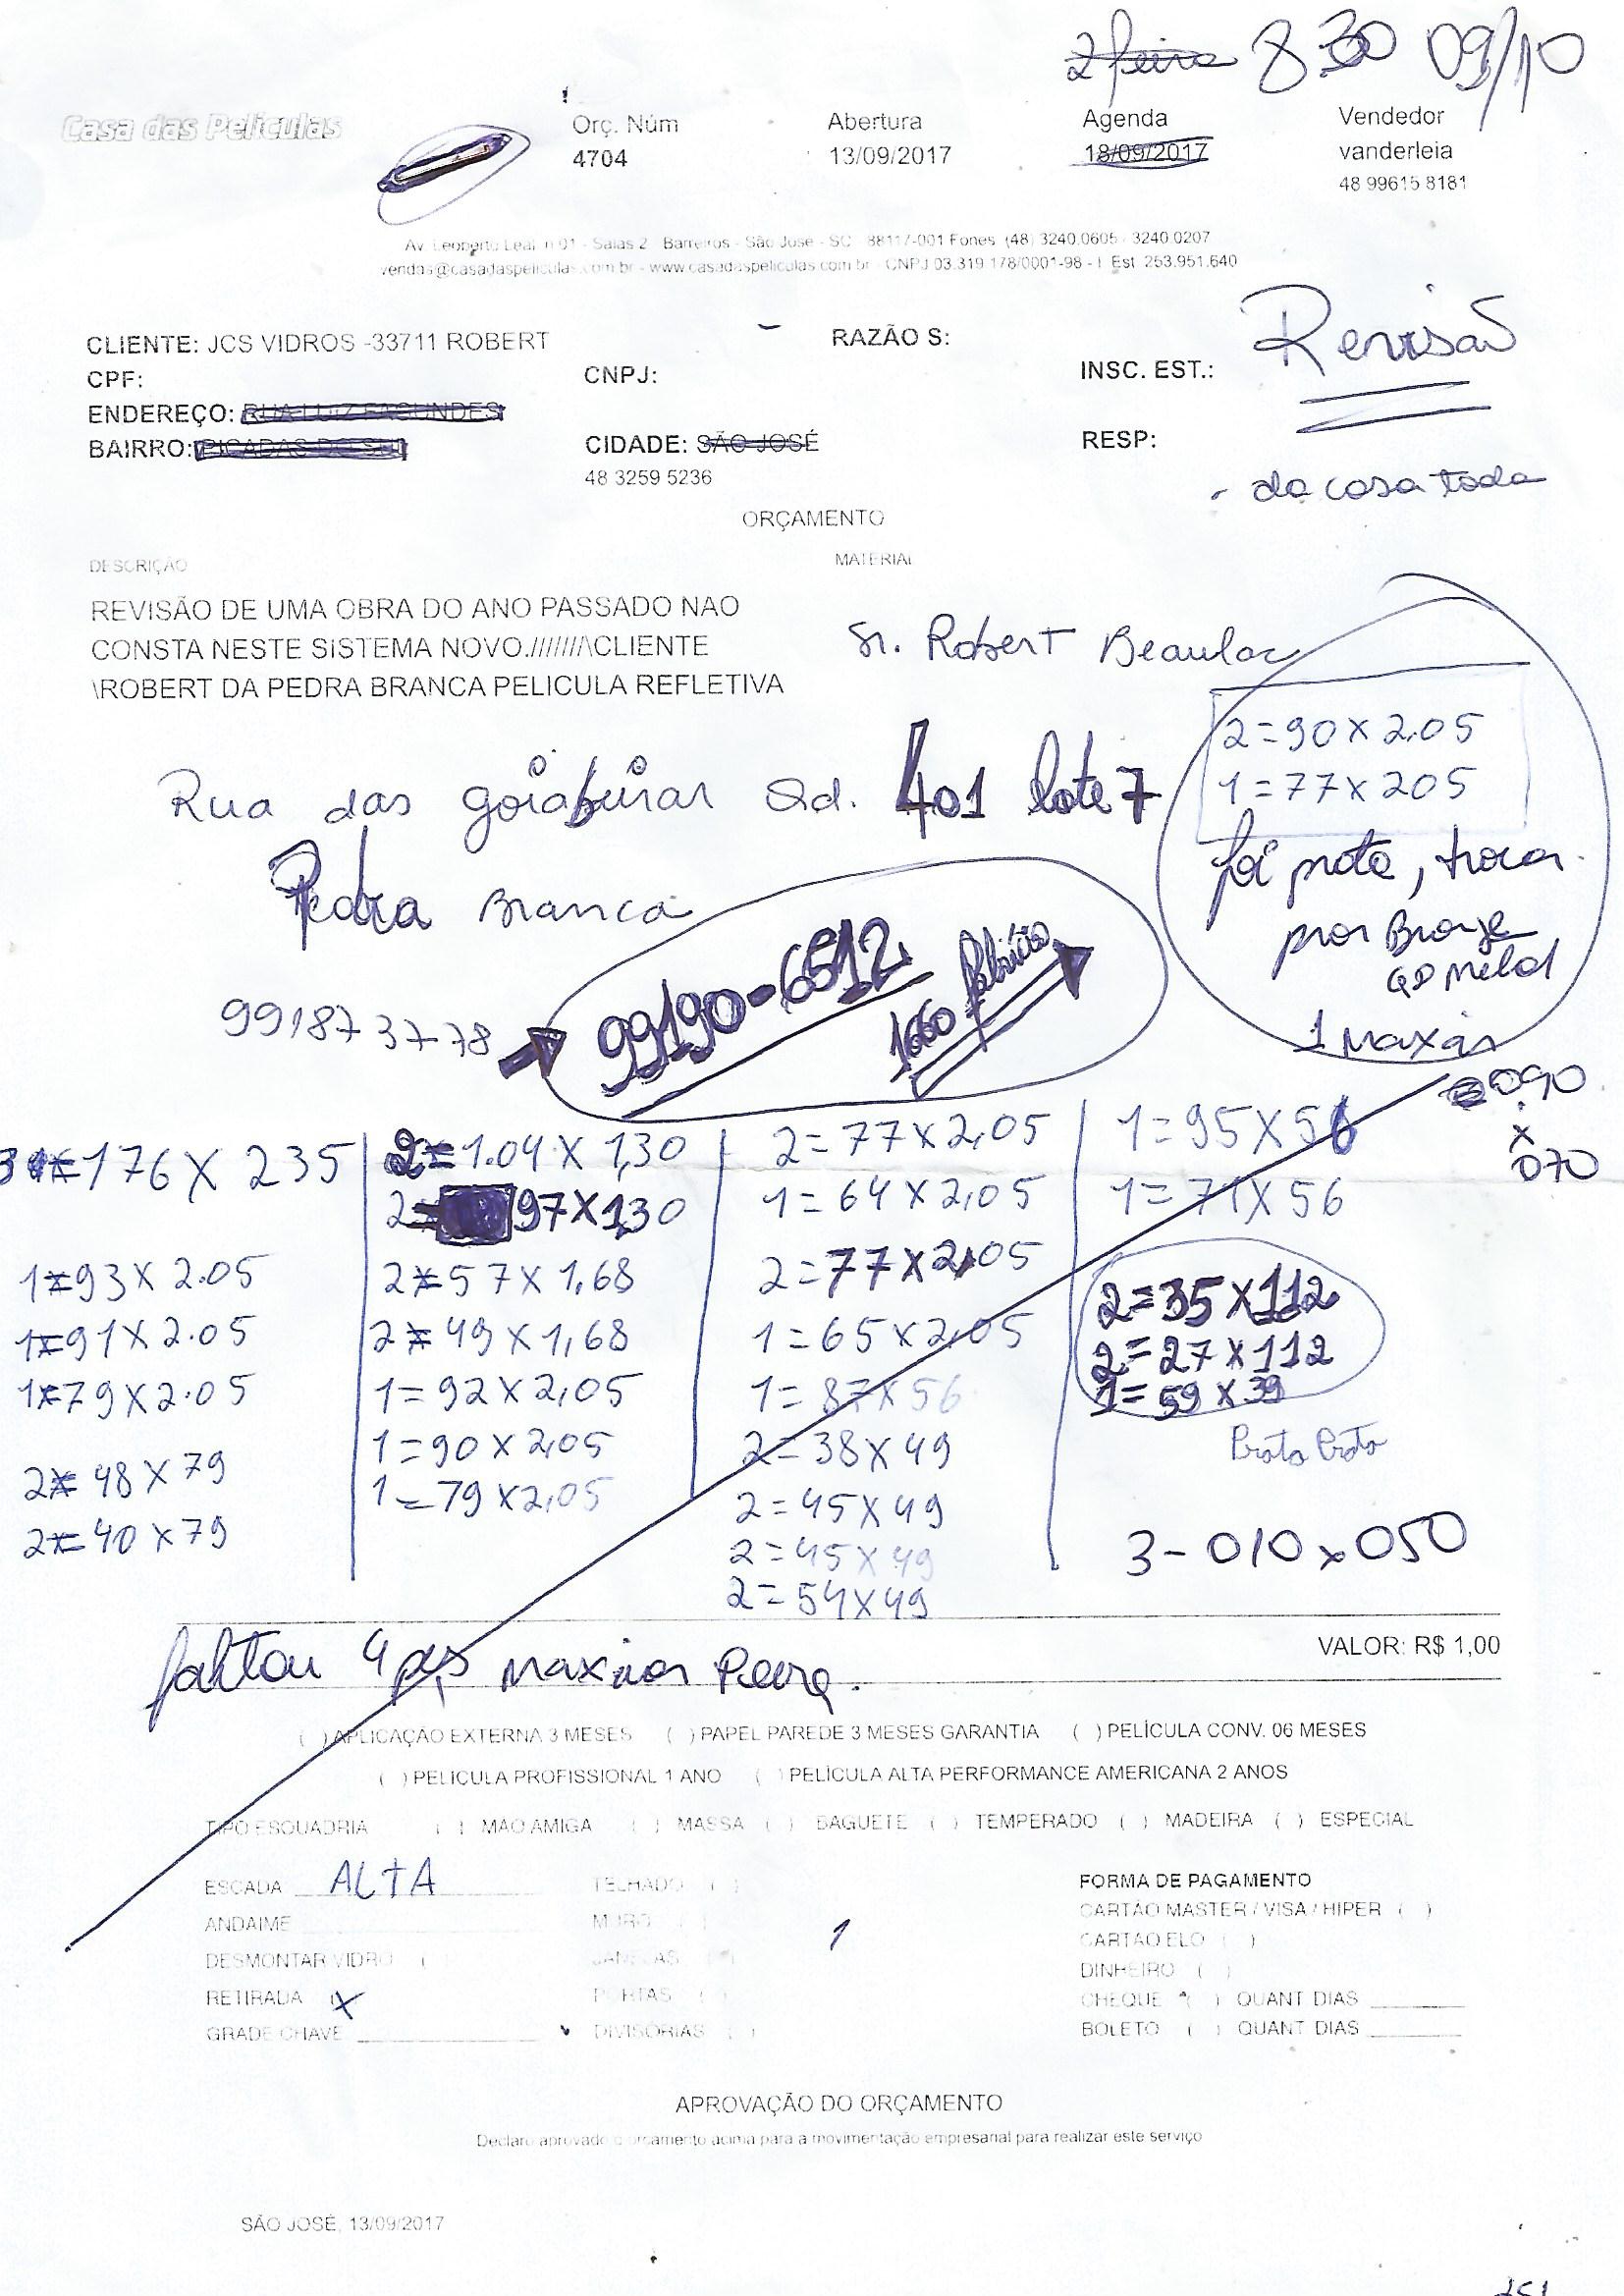 2 feira 8 30 09/10
Casa das Películas
Orç. Núm Abertura Agenda Vendedor
4704 13/09/2017 18/09/2017 vanderleia
48 99615 8181
Av. Leoberto Leal, n 01 - Salas 2 - Barreiros - São José - SC - 88117-001 Fones (48) 3240.0605 - 3240.0207
vendas@casadaspeliculas.com.br - www.casadaspeliculas.com.br - CNPJ 03.319.178/0001-98 - I. Est. 253.951.640
Revisão
CLIENTE: JCS VIDROS -33711 ROBERT RAZÃO S:
CPF: CNPJ: INSC. EST.:
ENDEREÇO: RUA LUIZ FAGUNDES
BAIRRO: PICADAS DO SUL CIDADE: SÃO JOSÉ RESP:
48 3259 5236
- da casa toda
ORÇAMENTO
DESCRIÇÃO MATERIAL
REVISÃO DE UMA OBRA DO ANO PASSADO NAO
CONSTA NESTE SISTEMA NOVO.///////\CLIENTE
\ROBERT DA PEDRA BRANCA PELICULA REFLETIVA
Sr. Robert Beaulac
2=90 x 2.05
1=77 x 205
Rua das goiabeiras Qd. 401 lote 7
Pedra Branca
foi prata, trocar
por Bronze
1 Maxar
090
x
070
991873778
99190-6512
1660
3 = 176 X 235
1=93 X 2.05
1=91 X 2.05
1=79 X 2.05
2= 48 x 79
2= 40 x 79
2=1.04 X 1,30
2= 97X1,30
2=57 X 1,68
2=49 X 1,68
1=92 X 2,05
1=90 x 2,05
1=79 x2,05
2=77x2,05
1=64x2,05
2=77x2,05
1=65x2,05
1=87x56
2=38x49
2=45x49
2=45x49
2=54x49
1=95x56
1=71x56
2=35x112
2=27x112
1=59x39
Prata Prata
3- 010x050
VALOR: R$ 1,00
faltou 4 pçs
( ) APLICAÇÃO EXTERNA 3 MESES ( ) PAPEL PAREDE 3 MESES GARANTIA ( ) PELÍCULA CONV. 06 MESES
( ) PELICULA PROFISSIONAL 1 ANO ( ) PELÍCULA ALTA PERFORMANCE AMERICANA 2 ANOS
TIPO ESQUADRIA ( ) MAO AMIGA ( ) MASSA ( ) BAGUETE ( ) TEMPERADO ( ) MADEIRA ( ) ESPECIAL
ESCADA ALTA TELHADO ( ) FORMA DE PAGAMENTO
ANDAIME MURO ( ) CARTÃO MASTER / VISA / HIPER ( )
DESMONTAR VIDRO ( JANELAS ( ) 1 CARTÃO ELO ( )
RETIRADA (X PORTAS ( ) DINHEIRO ( )
GRADE CHAVE DIVISÓRIAS ( ) CHEQUE ( ) QUANT DIAS
BOLETO ( ) QUANT DIAS
APROVAÇÃO DO ORÇAMENTO
Declaro aprovado o orçamento acima para a movimentação empresarial para realizar este serviço
SÃO JOSÉ, 13/09/2017